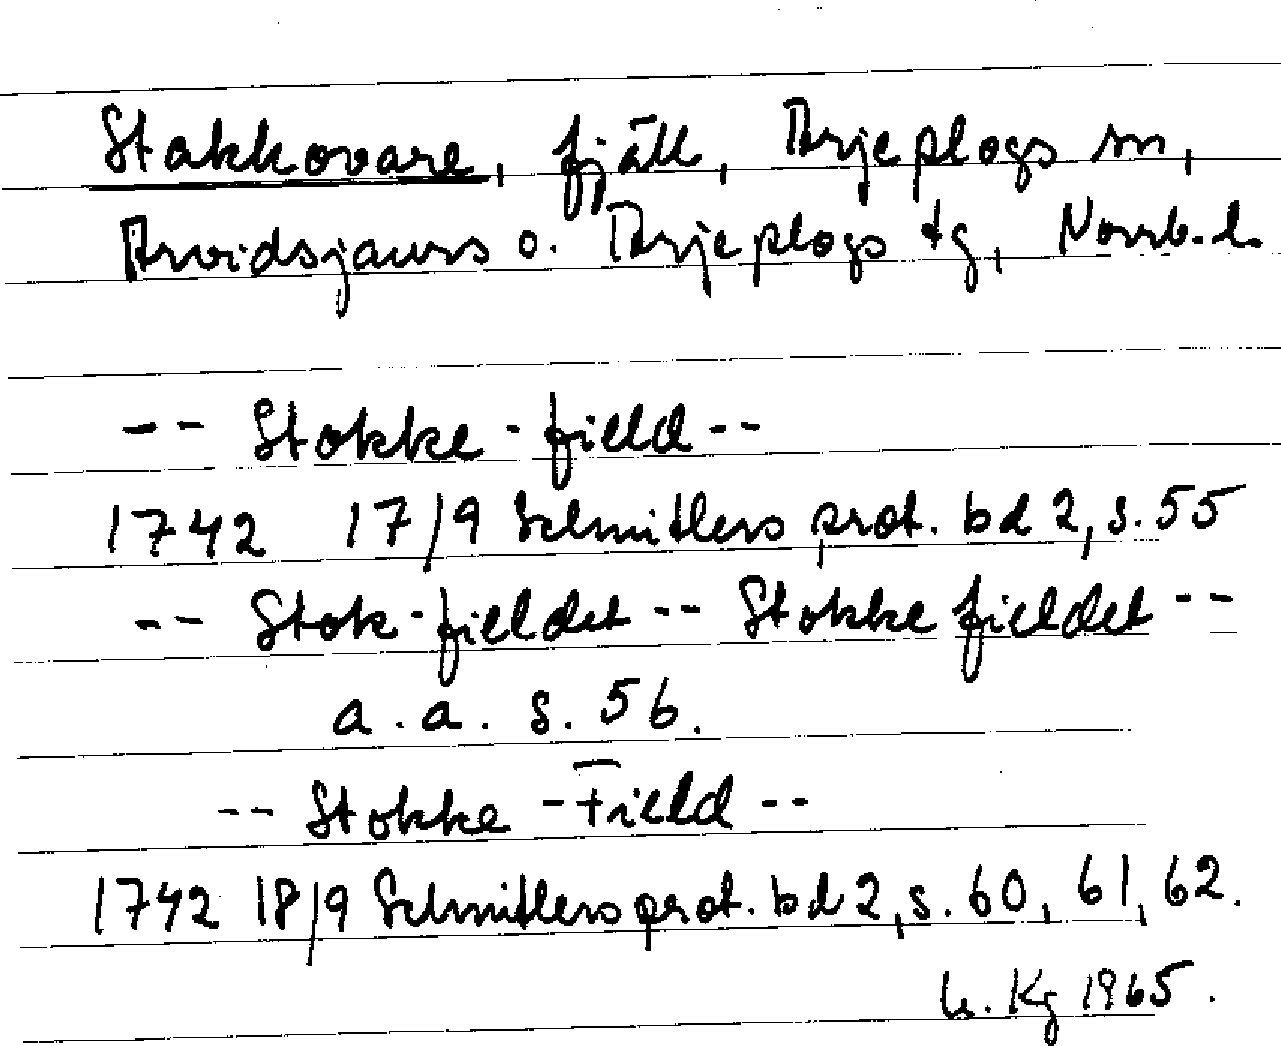 Stakkovare, fjäll, Arjeplogs sn,
Arvidsjaurs o. Arjeplogs tg, Norrb. l.
-- Stokke-field --
1742 17/9 Schnitlers prot. bd 2, s. 55
-- Stok-fieldet -- Stokkefieldet --
a. a. s. 56.
-- Stokke-Field --
1742 18/9 Schnitlers prot. bd 2, s. 60, 61, 62.
Kg 1965.